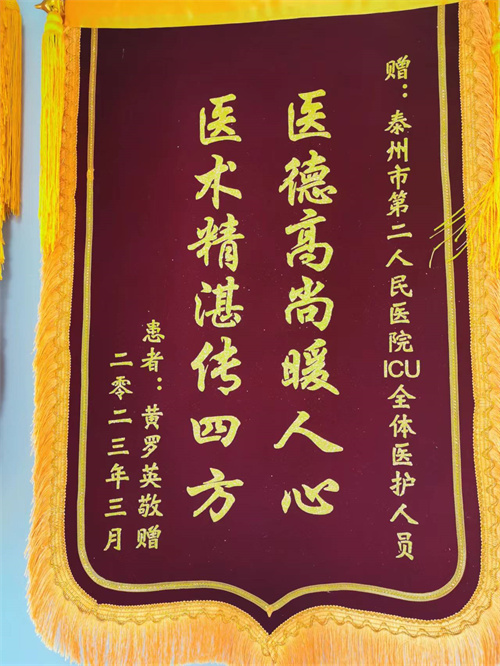 赠：泰州市第二人民医院ICU全体医护人员
医德高尚暖人心
医术精湛传四方
患者：黄罗英敬赠
二零二三年三月